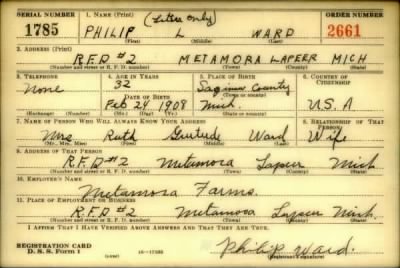 SERIAL NUMBER 1. NAME (Print) (Letter only) ORDER NUMBER
1785 PHILIP L WARD 2661
(First) (Middle) (Last)
2. ADDRESS (Print)
R.F.D #2 METAMORA LAPEER MICH
(Number and street or R. F. D. number) (Town) (County) (State)
3. TELEPHONE 4. AGE IN YEARS 5. PLACE OF BIRTH 6. COUNTRY OF CITIZENSHIP
None 32 Saginaw County
DATE OF BIRTH
Feb 24 1908 Mich. U.S.A
(Exchange) (Number) (Mo.) (Day) (Yr.) (State or country)
7. NAME OF PERSON WHO WILL ALWAYS KNOW YOUR ADDRESS 8. RELATIONSHIP OF THAT PERSON
Mrs Ruth Gertrude Ward Wife
(Mr., Mrs., Miss) (First) (Middle) (Last)
9. ADDRESS OF THAT PERSON
R.F.D #2 Metamora Lapeer Mich
(Number and street or R. F. D. number) (Town) (County) (State)
10. EMPLOYER'S NAME
Metamora Farms.
11. PLACE OF EMPLOYMENT OR BUSINESS
R.F.D #2 Metamora Lapeer Mich.
(Number and street or R. F. D. number) (Town) (County) (State)
I AFFIRM THAT I HAVE VERIFIED ABOVE ANSWERS AND THAT THEY ARE TRUE.
REGISTRATION CARD
D. S. S. Form 1 Philip Ward.
(Registrant's signature)